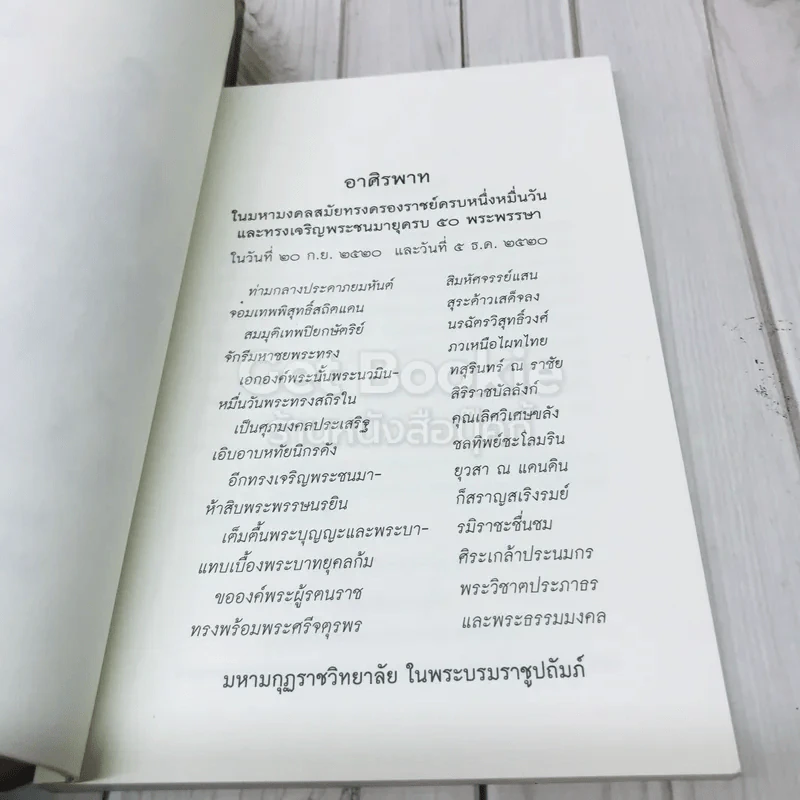 อาศิรพาท
ในมหามงคลสมัยทรงครองราชย์ครบหนึ่งหมื่นวัน
และทรงเจริญพระชนมายุครบ ๕๐ พระพรรษา
ในวันที่ ๒๐ ก.ย. ๒๕๒๐ และวันที่ ๕ ธ.ค. ๒๕๒๐
ท่ามกลางประดาภยมหันต์ สิมหัศจรรย์แสน
จอมเทพพิสุทธิ์สถิตแดน สุระด้าวเสด็จลง
สมมุติเทพปิยกษัตริย์ นรฉัตรวิสุทธิ์วงศ์
จักรีมหาชยพระทรง ภวเหนือไผทไทย
เอกองค์พระนั้นพระนวมิน- ทสุรินทร์ ณ ราชัย
หมื่นวันพระทรงสถิรใน สิริราชบัลลังก์
เป็นศุภมงคลประเสริฐ คุณเลิศวิเศษขลัง
เอิบอาบหทัยนิกรดัง ชลทิพย์ชะโลมริน
อีกทรงเจริญพระชนมา- ยุวสา ณ แดนดิน
ห้าสิบพระพรรษนรยิน ก็สราญสเริงรมย์
เต็มตื้นพระบุญญะและพระบา- รมิราชะชื่นชม
แทบเบื้องพระบาทยุคลก้ม ศิระเกล้าประนมกร
ขอองค์พระผู้รตนราช พระวิชาตประภาธร
ทรงพร้อมพระศรีจตุรพร และพระธรรมมงคล
มหามกุฏราชวิทยาลัย ในพระบรมราชูปถัมภ์
Get Bookie
ร้านหนังสือบุ๊คกี้